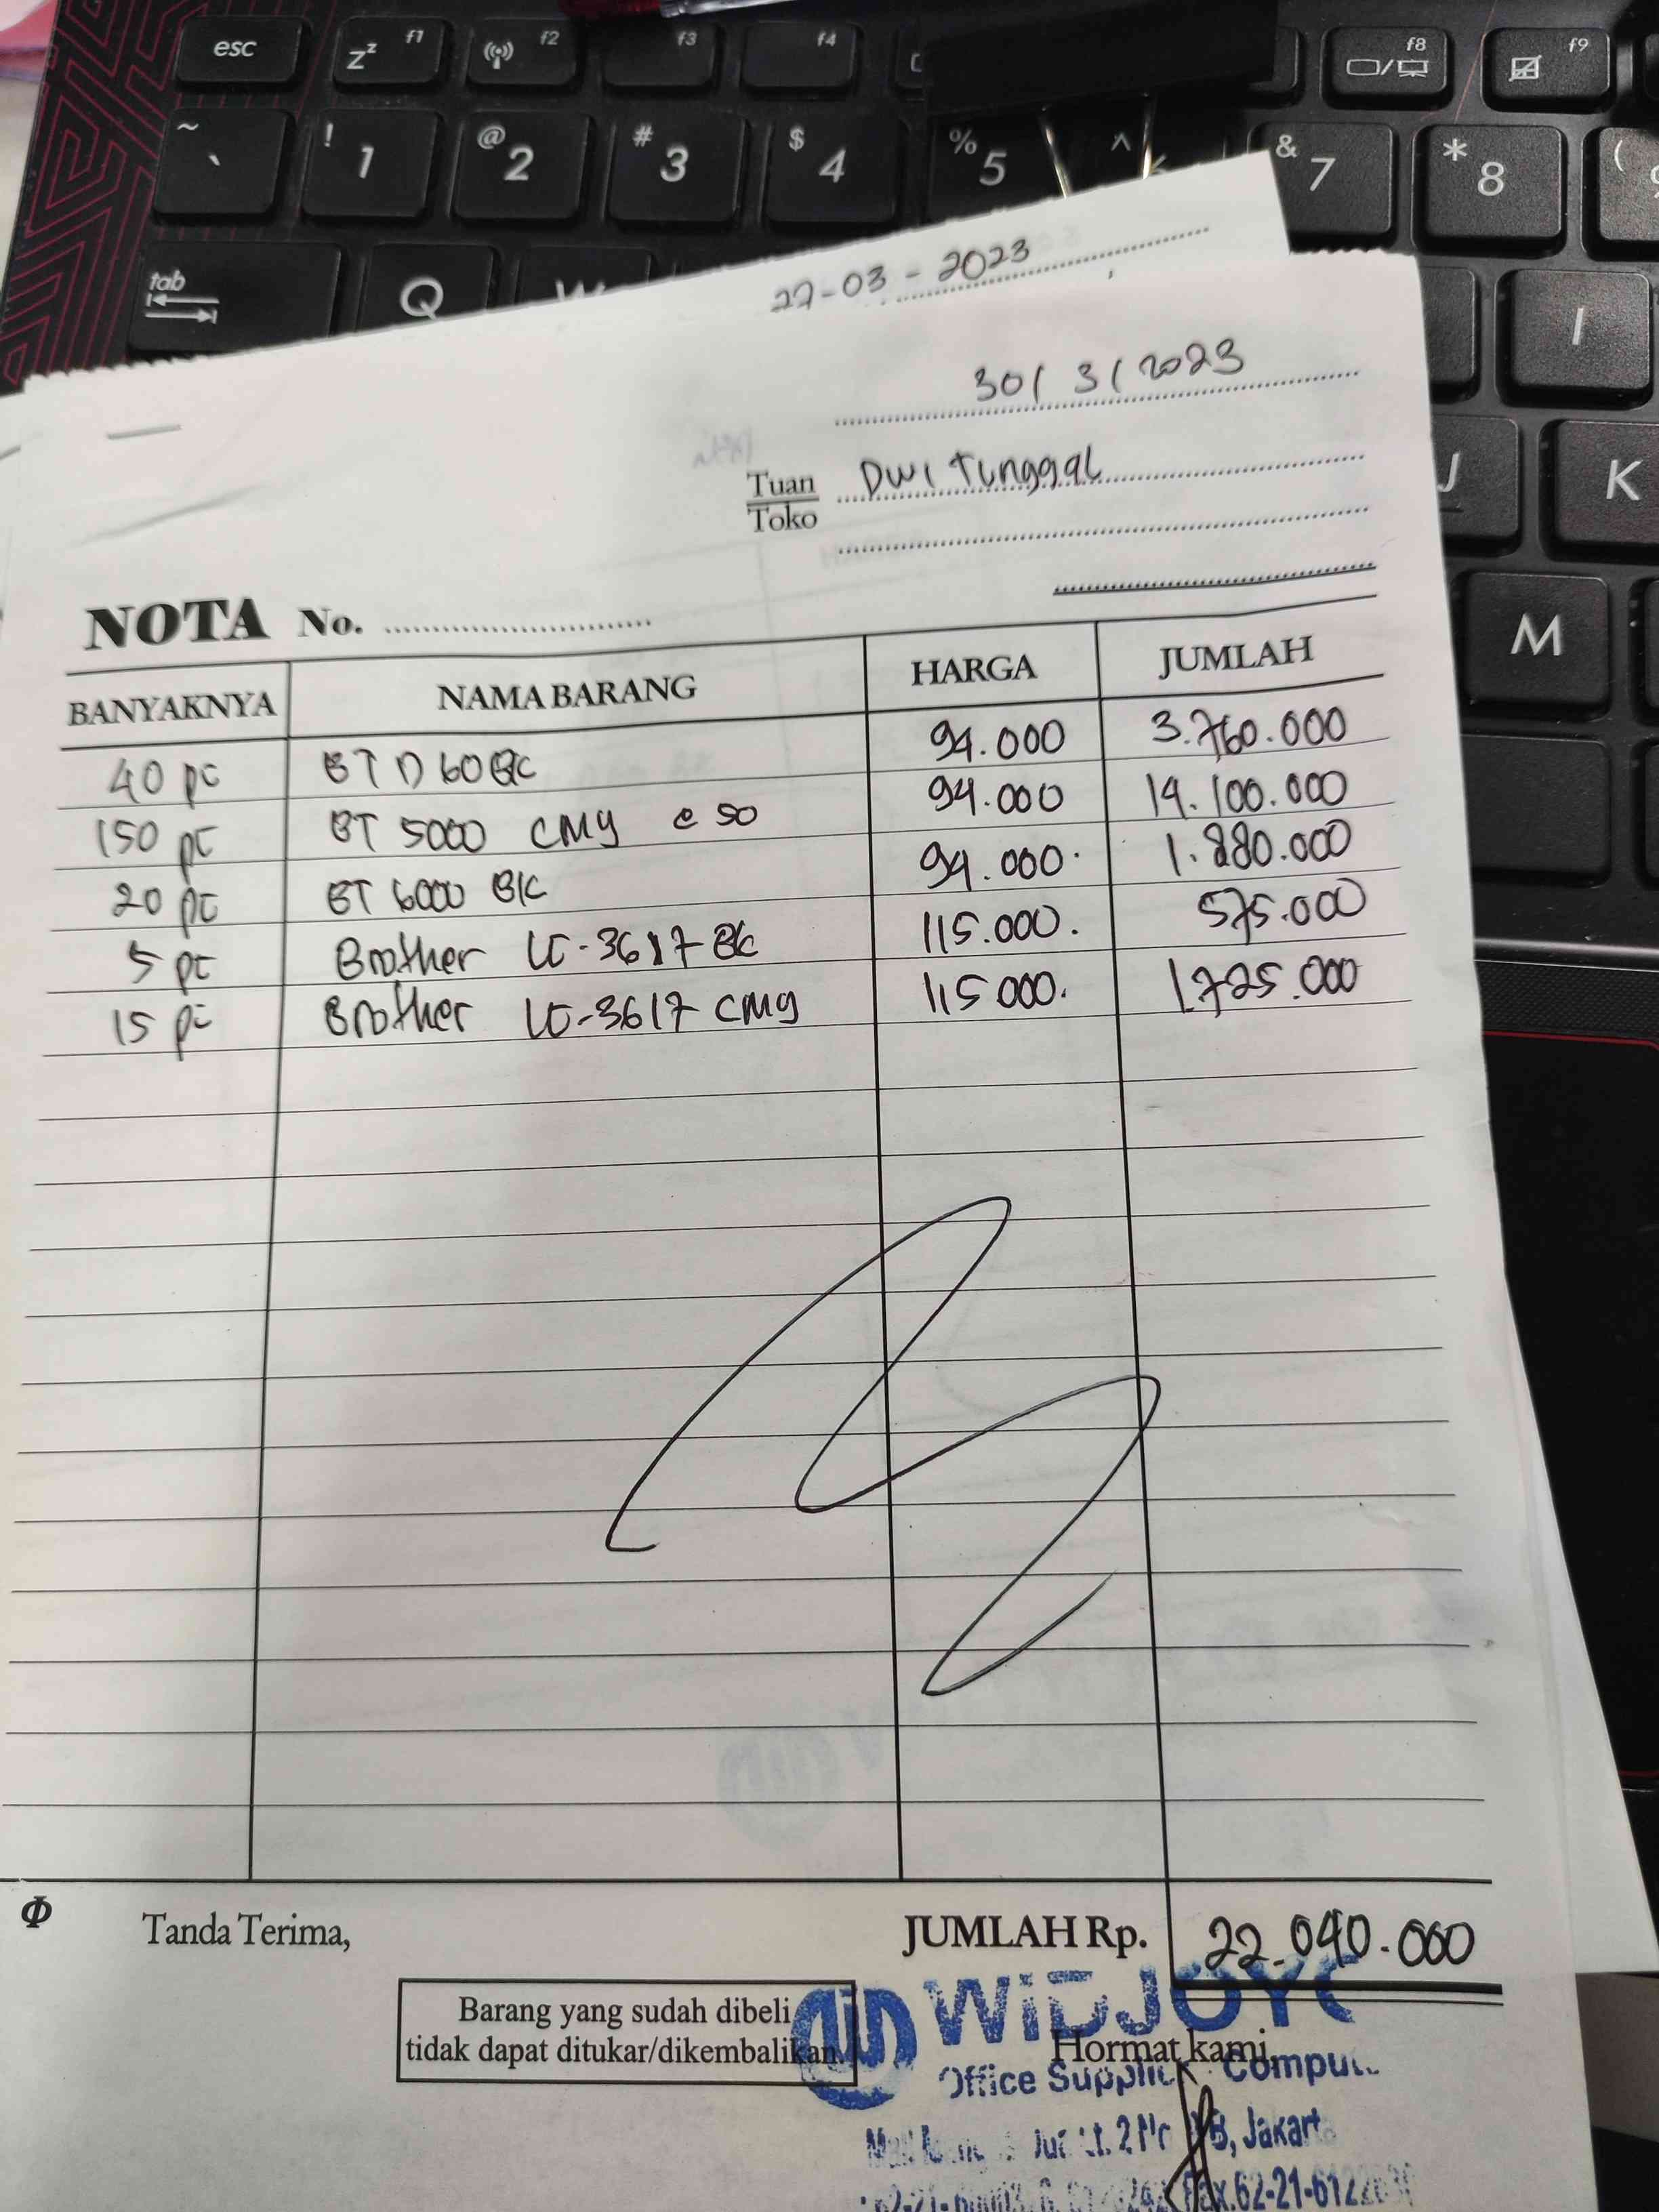 esc zᶻ f1 f2 f3 f4 f8 f9
~ ` ! 1 @ 2 # 3 $ 4 % 5 ^ & 7 * 8 (
tab Q I
J K
M
27-03-2023
30/3/2023
Tuan Dwi Tunggal
Toko
NOTA No.
BANYAKNYA NAMA BARANG HARGA JUMLAH
40 pc BT D60BK 94.000 3.760.000
150 pc BT 5000 CMY @ 50 94.000 14.100.000
20 pc BT 6000 BK 94.000 1.880.000
5 pc Brother LC-3617 BK 115.000 575.000
15 pc Brother LC-3617 CMY 115.000 1.725.000
Φ Tanda Terima, JUMLAH Rp. 22.040.000
Barang yang sudah dibeli
tidak dapat ditukar/dikembalikan
WIDJOYO
Hormat kami,
Office Supplie Comput
Lt. 2 B, Jakarta
Fax.62-21-6122